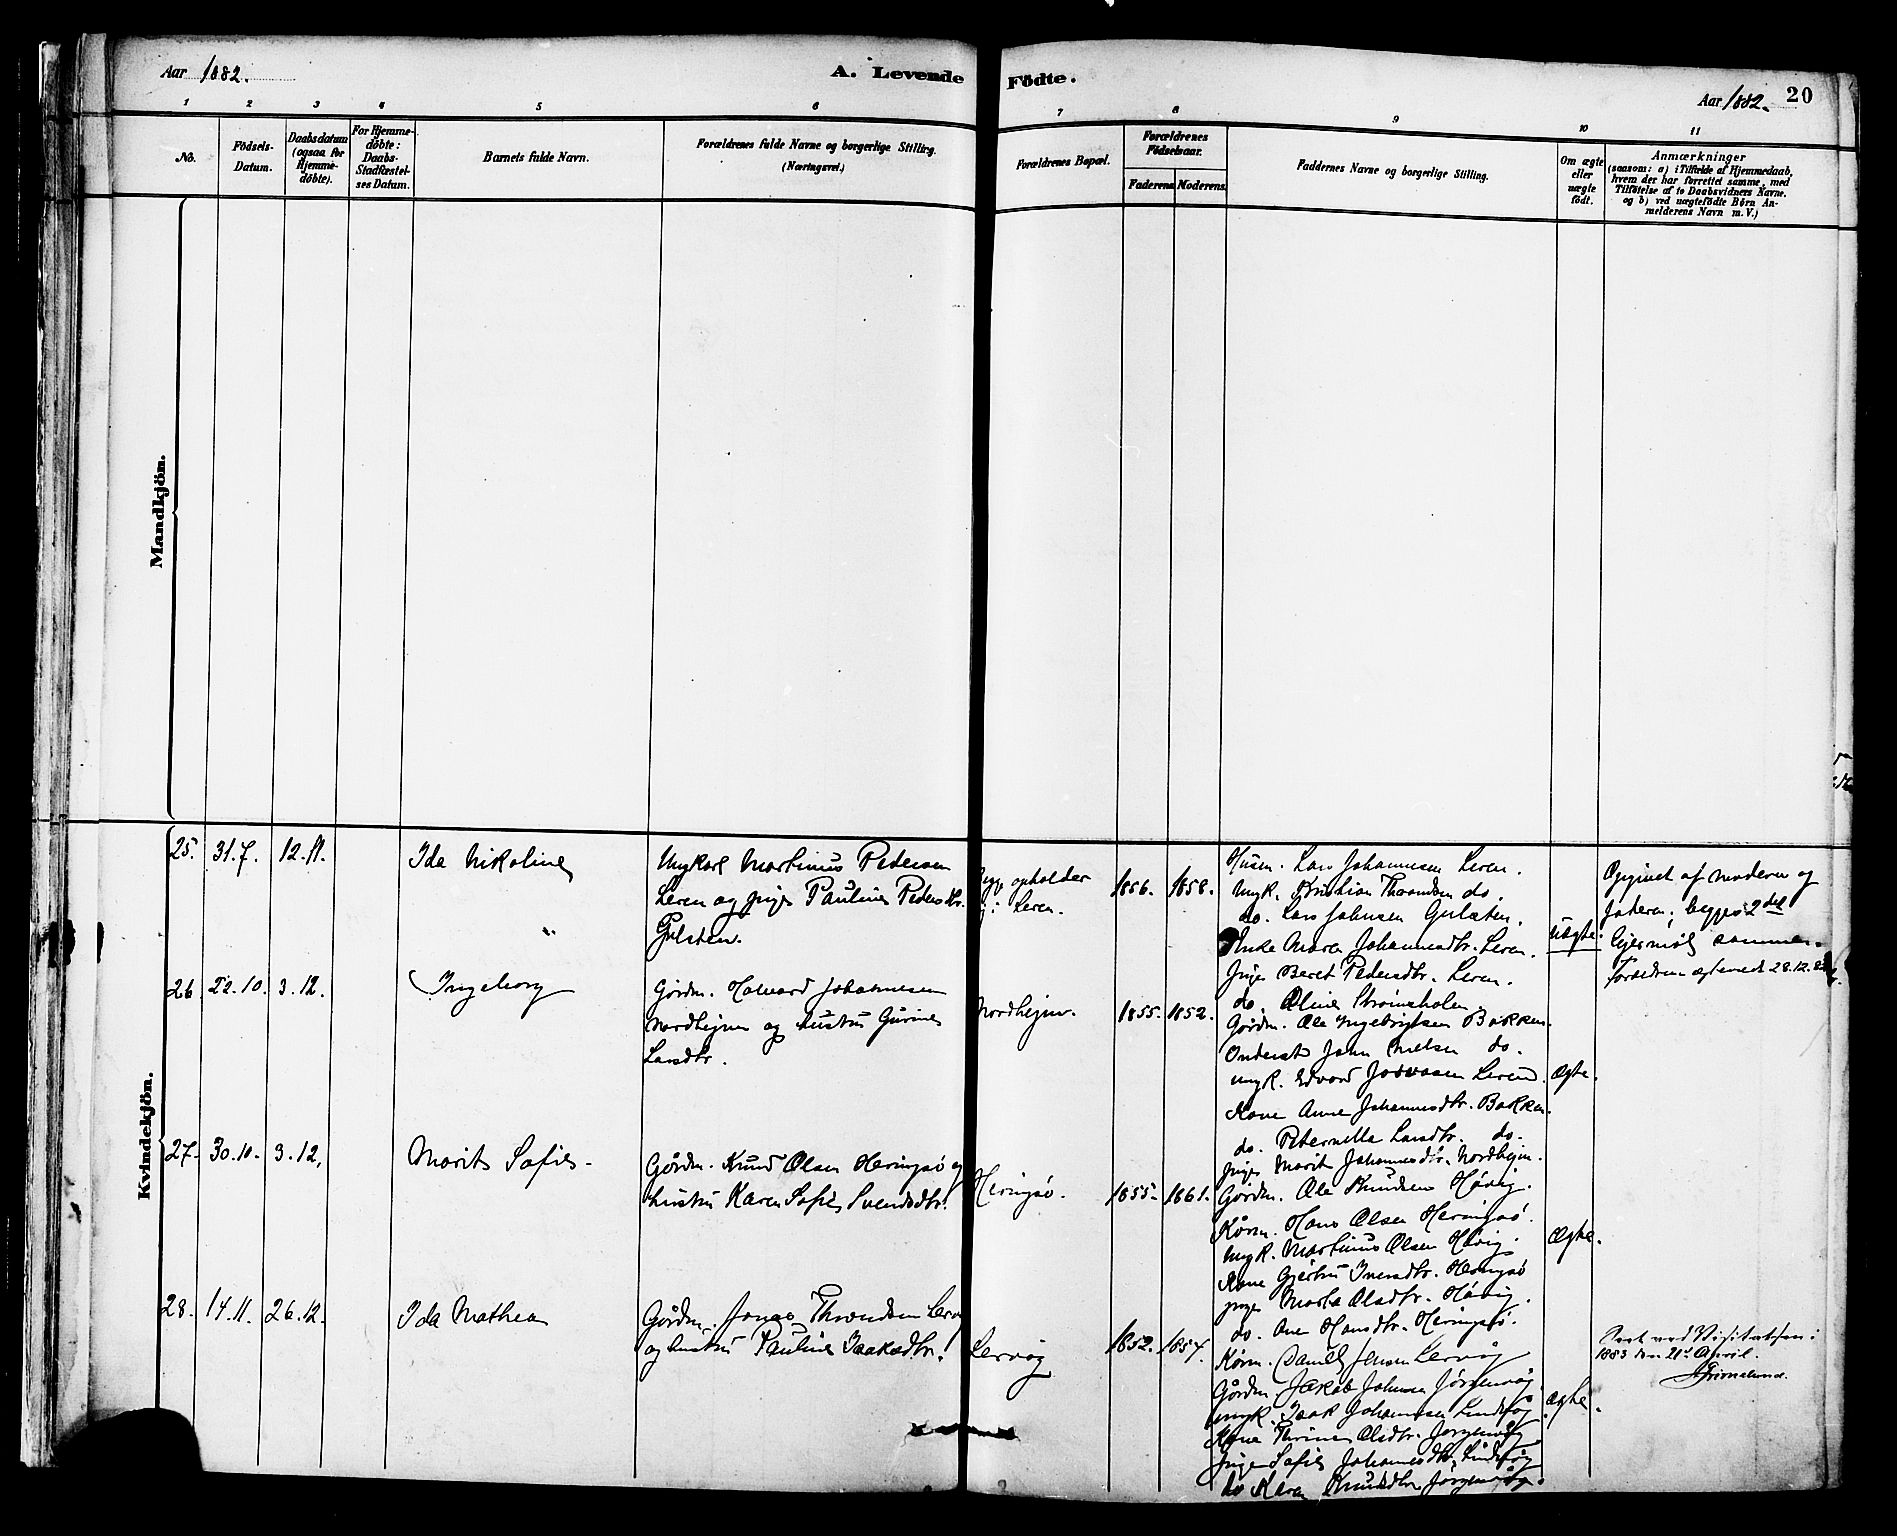 Aar 1882.
A. Levende
Födte.
Aar 1882.
20
1
2
3
4
5
6
7
8
9
10
11
No.
Födsels-
Datum.
Daabsdatum
(ogsaa for
Hjemme-
döbte).
For Hjemme-
döbte:
Daabs-
Stadfæstel-
ses Datum.
Barnets fulde Navn.
Forældrenes fulde Navne og borgerlige Stilling.
(Næringsvei.)
Forældrenes Bopæl.
Forældrenes
Födselsaar.
Faderens
Moderens.
Faddernes Navne og borgerlige Stilling.
Om ægte
eller
uægte
födt.
Anmærkninger
(saasom: a) i Tilfælde af Hjemmedaab,
hvem der har forrettet samme, med
Tilföielse af to Daabsvidners Navne.
og b) ved uægtefödte Börn An-
melderens Navn m. V.)
Mandkjön.
Kvindekjön.
25.
31.7.
12.11.
Ida Nikoline
Ungkarl Martinus Pedersen
Leren og Pige Pauline Pedersdtr.
Gulsten.
Begge opholder
sig i Leren.
1856.
1858.
Husm. Lars Johannesen Leren.
Ungk. Kristian Throndsen do.
do. Lars Johnsen
Enke Maren Johannesdtr. Leren.
Pige Beret Pedersdtr. Leren.
do. Oline Strömsholm
Uægte.
Opgivet af moderen og
faderen; begges 2det
Leiermål sammen.
Forældrene ægteviede 28.12.
26
22.10.
3.12.
Ingeborg
Gårdm. Halvard Johannesen
Nordhejm og hustru Gurine
Larsdtr.
Nordhejm.
1855.
1852.
Gårdm. Ole Ingebrigtsen Bakken.
John Nielsen do.
Ungk. Edvard Leren.
Kone Anne Johannesdtr. Bakken.
do. Peternella Larsdtr. do.
Pige Marit Johannesdtr. Nordhejm.
Ægte.
27.
30.10.
3.12.
Marit Sofie.
Gårdm. Knud Olsen Heringsö og
hustru Karen Sofie Svendsdtr.
Heringsö.
1855.
1861.
Gårdm. Ole Knudsen Håvig.
Kårm. Hans Olsen Heringsö.
Ungk. Martinus Olsen Håvig.
Kone Gjertru Iversdtr. Heringsö
Pige Marta Olsdtr. Håvig.
do. Ane Hansdtr. Heringsö.
Ægte.
28.
14.11.
26.12.
Ida Mathea
Gårdm. Jonas Throndsen Lervåg
og hustru Pauline Isaksdtr.
Lervåg
1852.
1857.
Kårm. Daniel Jensen Lervåg
Gårdm. Jakob Johnsen Jörgenvåg
Ungk. Isak Johannesen Lindvåg
Kone Thrine Olsdtr. Jörgenvåg
Pige Sofie Johannesdtr. Lindvåg
do Karen Knudsdtr Jörgenvåg.
Ægte.
Seet ved Visitatsen i
1883 den 21de April.
Grimelund.